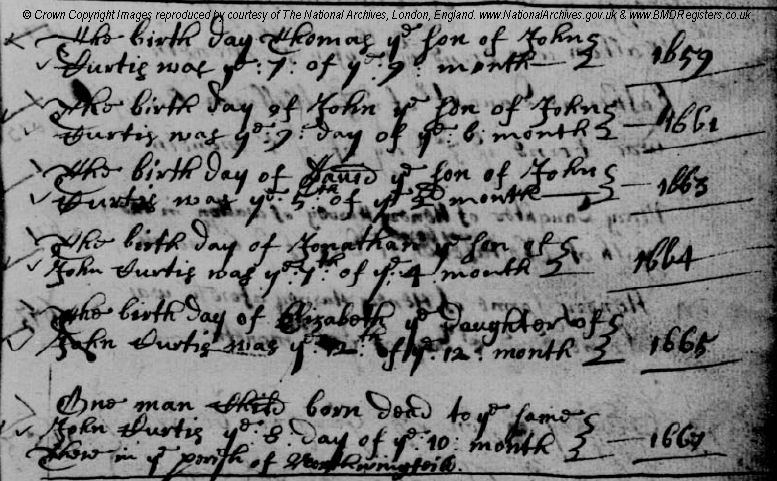 © Crown Copyright Images reproduced by courtesy of The National Archives, London, England. www.NationalArchives.gov.uk & www.BMDRegisters.co.uk
The birth day Thomas ye son of John
Curtis was ye: 7: of ye: 9: month 1659
The birth day of John ye son of John
Curtis was ye: 7: day of ye: 6: month 1661
The birth day of David ye son of John
Curtis was ye: 5th of ye 3d month 1663
The birth day of Jonathan ye son of
John Curtis was ye: of ye: 4 month 1664
The birth day of Elizabeth ye Daughter of
John Curtis was ye: 12th of ye: 12: month 1665
One man Child born dead to ye same
John Curtis ye: 8: day of ye: 10: month 1667
There in ye perish of